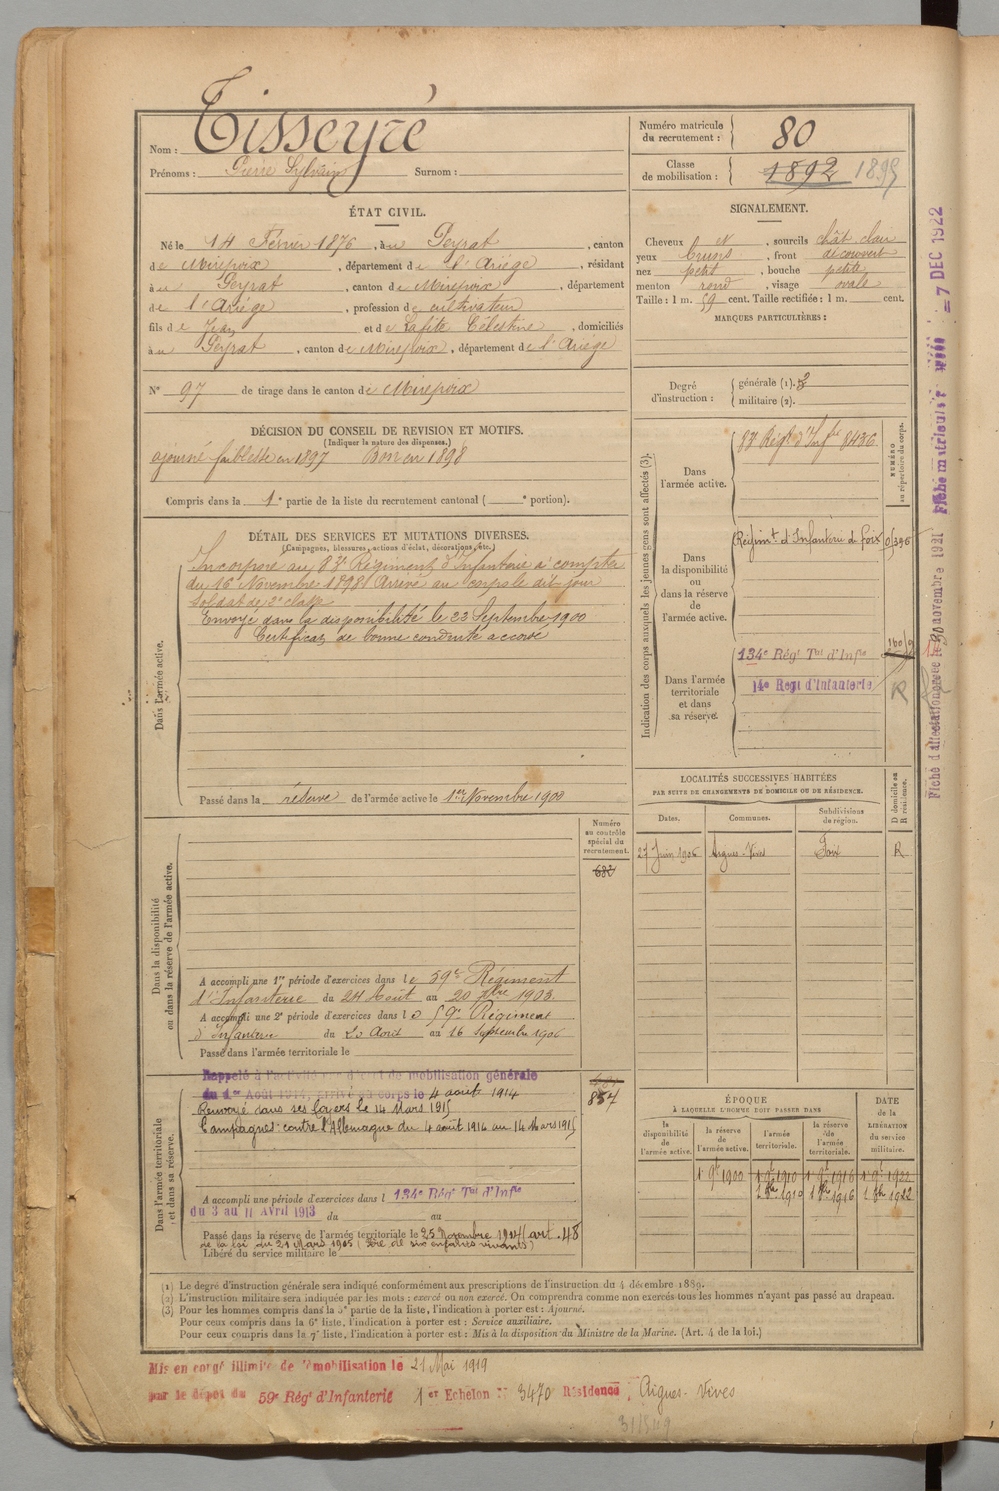 Nom : Tisseyre
Prénoms : Pierre Sylvain Surnom :
Numéro matricule du recrutement : 80
Classe de mobilisation : 1892 1895
ÉTAT CIVIL.
Né le 14 Février 1876, à Peyrat, canton
de Mirepoix, département de l'Ariége, résidant
à Peyrat, canton de Mirepoix, département
de l'Ariége, profession de cultivateur
fils de Jean et de Lafite Célestine, domiciliés
à Peyrat, canton de Mirepoix, département de l'Ariége
N° 97 de tirage dans le canton de Mirepoix
SIGNALEMENT.
Cheveux et, sourcils chât clair
yeux bruns, front découvert
nez petit, bouche petite
menton rond, visage ovale
Taille : 1 m. 59 cent. Taille rectifiée : 1 m. cent.
MARQUES PARTICULIÈRES :
Degré d'instruction : générale (1). 3
militaire (2).
DÉCISION DU CONSEIL DE REVISION ET MOTIFS.
(Indiquer la nature des dispenses.)
ajourné faiblesse en 1897 Bon en 1898
Compris dans la 1e partie de la liste du recrutement cantonal ( e portion).
DÉTAIL DES SERVICES ET MUTATIONS DIVERSES.
(Campagnes, blessures, actions d'éclat, décorations, etc.)
Dans l'armée active.
Incorporé au 83e Régiment d'Infanterie à compter
du 16 Novembre 1898 Arrivé au corps le dit jour
soldat de 2e classe
Envoyé dans la disponibilité le 23 Septembre 1900
Certificat de bonne conduite accordé
Passé dans la réserve de l'armée active le 1er Novembre 1900
Indication des corps auxquels les jeunes gens sont affectés (3).
NUMÉRO au répertoire du corps.
Dans l'armée active.
83e Régt d'Infrie 8436
Dans la disponibilité ou dans la réserve de l'armée active.
Régimt d'Infanterie de Foix 0/396
Dans l'armée territoriale et dans sa réserve.
134e Régt Tal d'Infie
14e Regt d'Infanterie R
LOCALITÉS SUCCESSIVES HABITÉES
PAR SUITE DE CHANGEMENTS DE DOMICILE OU DE RÉSIDENCE.
Dates. Communes. Subdivisions de région. D domicile ou R résidence.
27 Juin 1906 Aigues-Vives Foix R
Dans la disponibilité ou dans la réserve de l'armée active.
Numéro au contrôle spécial du recrutement.
A accompli une 1re période d'exercices dans le 59e Régiment
d'Infanterie du 24 Août au 20 7bre 1903.
A accompli une 2e période d'exercices dans le 59e Régiment
d'Infanterie du 20 Août au 16 Septembre 1906
Passé dans l'armée territoriale le
Dans l'armée territoriale et dans sa réserve.
Rappelé à l'activité décret de mobilisation générale
du 1er Août 1914, arrivé au corps le 4 août 1914
Renvoyé dans ses foyers le 14 Mars 1915
Campagnes: contre l'Allemagne du 4 août 1914 au 14 Mars 1915
857
A accompli une période d'exercices dans l 134e Régt Tal d'Infie
du 3 au 11 Avril 1913 du au
Passé dans la réserve de l'armée territoriale le 25 Novembre 1914 (art. 48
de la loi du 21 Mars 1905 (Père de six enfants vivants)
Libéré du service militaire le
ÉPOQUE
À LAQUELLE L'HOMME DOIT PASSER DANS
la disponibilité de l'armée active. la réserve de l'armée active. l'armée territoriale. la réserve de l'armée territoriale.
DATE de la LIBÉRATION du service militaire.
1 9bre 1900 1 9bre 1910 1 9bre 1916 1 9bre 1922
1 8bre 1910 1 8bre 1916 1 8bre 1922
(1) Le degré d'instruction générale sera indiqué conformément aux prescriptions de l'instruction du 4 décembre 1889.
(2) L'instruction militaire sera indiquée par les mots : exercé ou non exercé. On comprendra comme non exercés tous les hommes n'ayant pas passé au drapeau.
(3) Pour les hommes compris dans la 5e partie de la liste, l'indication à porter est : Ajourné.
Pour ceux compris dans la 6e liste, l'indication à porter est : Service auxiliaire.
Pour ceux compris dans la 7e liste, l'indication à porter est : Mis à la disposition du Ministre de la Marine. (Art. 4 de la loi.)
Mis en congé illimité de démobilisation le 21 Mai 1919
par le dépôt du 59e Régt d'Infanterie 1er Echelon N° 3470 Résidence : Aigues-Vives
Fiche d'affectation créée le 30 novembre 1921 Fiche matriculaire = 7 DEC 1922